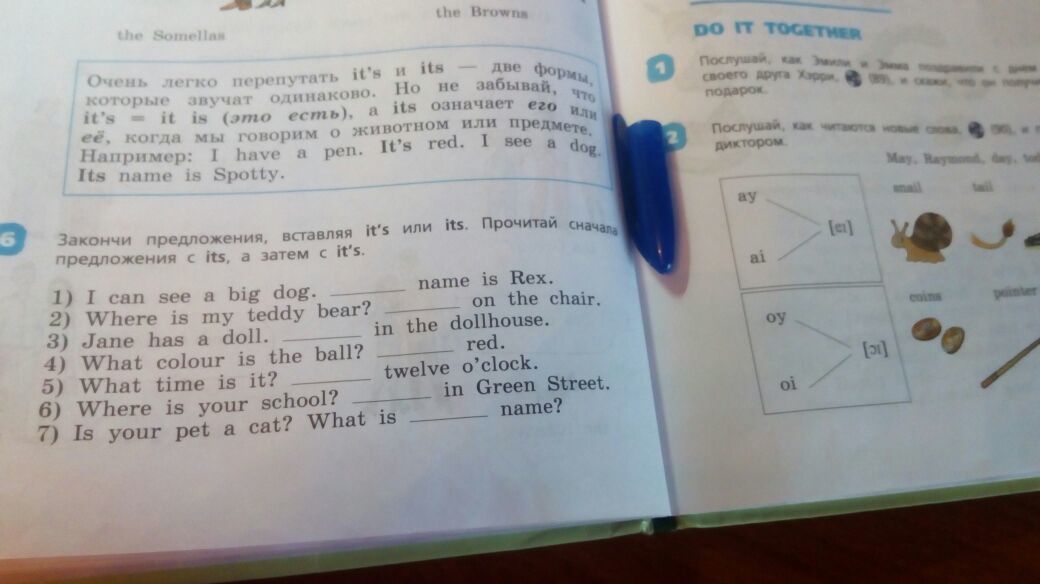 the Browns
the Somellas
Очень легко перепутать it's и its — две формы,
которые звучат одинаково. Но не забывай, что
it's = it is (это есть), а its означает его или
её, когда мы говорим о животном или предмете.
Например: I have a pen. It's red. I see a dog.
Its name is Spotty.
6 Закончи предложения, вставляя it's или its. Прочитай сначала
предложения с its, а затем с it's.
1) I can see a big dog. ______ name is Rex.
2) Where is my teddy bear? ______ on the chair.
3) Jane has a doll. ______ in the dollhouse.
4) What colour is the ball? ______ red.
5) What time is it? ______ twelve o'clock.
6) Where is your school? ______ in Green Street.
7) Is your pet a cat? What is ______ name?
DO IT TOGETHER
1 Послушай, как Эмили и Эмма поздравили с днём
своего друга Хэрри, (89), и скажи, что он
подарок.
2 Послушай, как читаются новые слова, (90), и
диктором.
May, Raymond, day,
snail tail
ay
[eɪ]
ai
coins pointer
oy
[ɔɪ]
oi